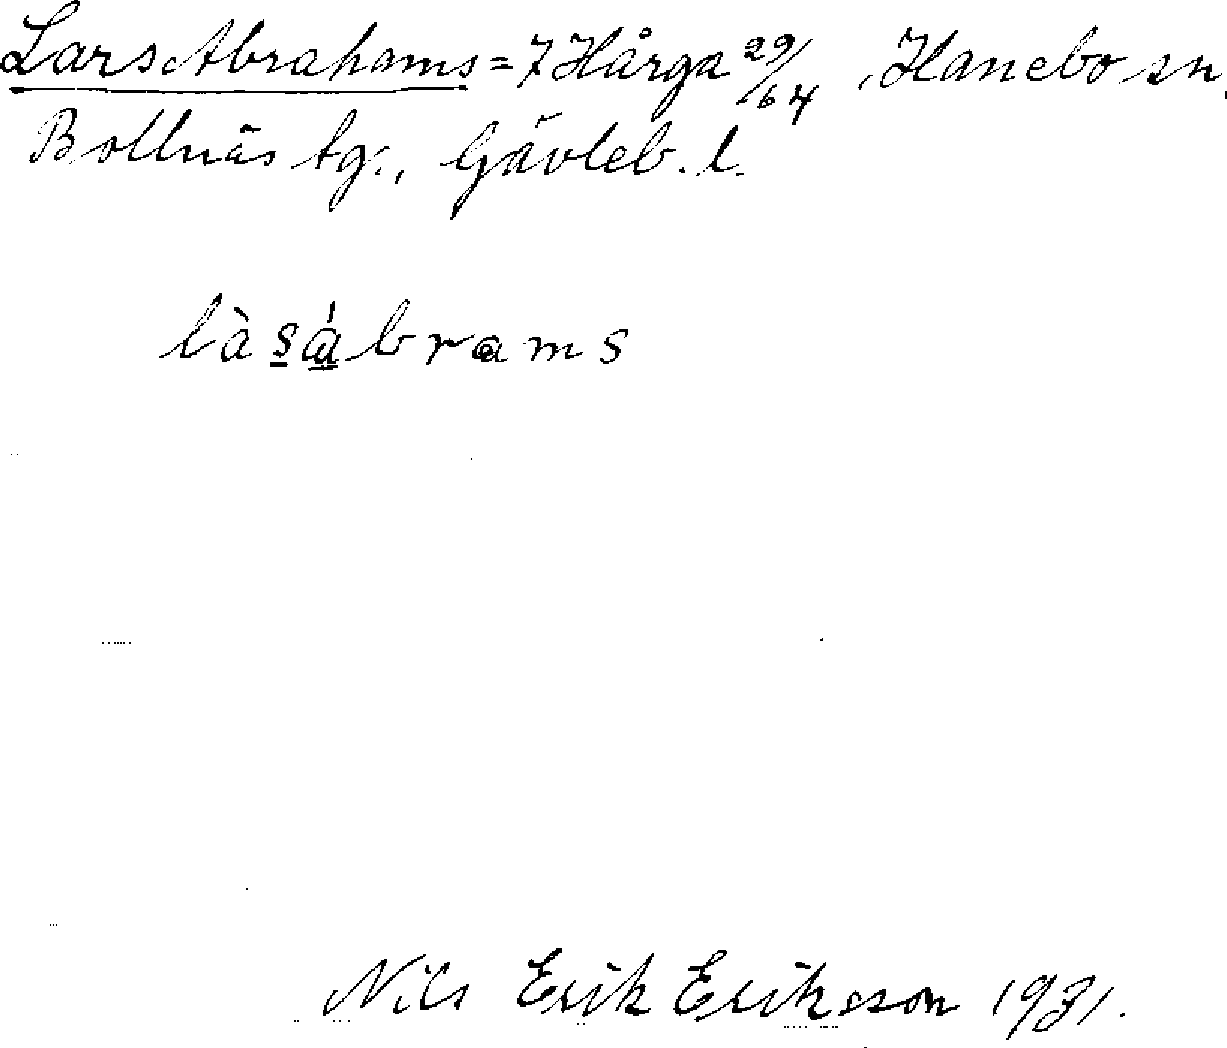 Lars Abrahams = 7 Hårga 29/64, Hanebo sn,
Bollnäs tg., Gävleb. l.
làsábrams
Nils Erik Eriksson 1931.